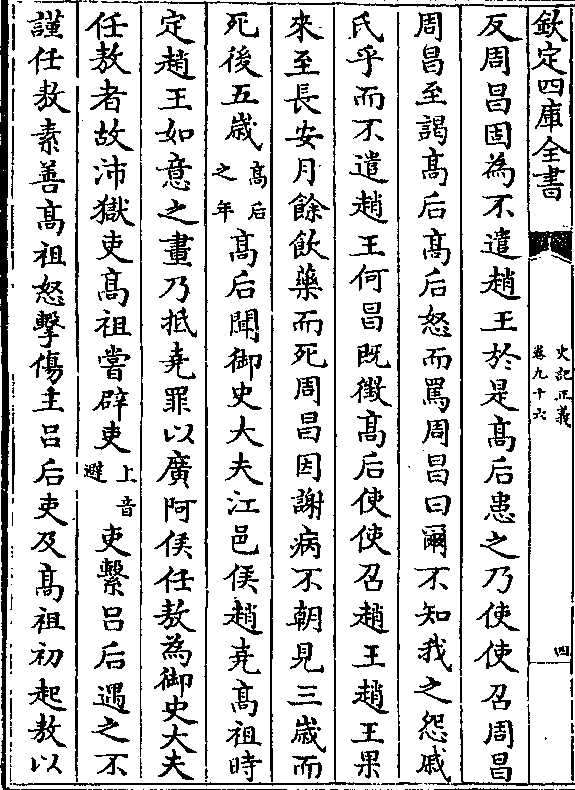 欽定四庫全書
史記正義
卷九十六
四
反周昌固為不遣趙王於是髙后患之乃使使召周昌
周昌至謁髙后髙后怒而罵周昌曰爾不知我之怨戚
氏乎而不遣趙王何昌既徴髙后使使召趙王趙王果
來至長安月餘飲藥而死周昌因謝病不朝見三歳而
死後五歳髙后之年髙后聞御史大夫江邑侯趙堯髙祖時
定趙王如意之畫乃抵堯罪以廣阿侯任敖為御史大夫
任敖者故沛獄吏髙祖嘗辟吏上音避吏繫吕后遇之不
謹任敖素善髙祖怒擊傷主吕后吏及髙祖初起敖以